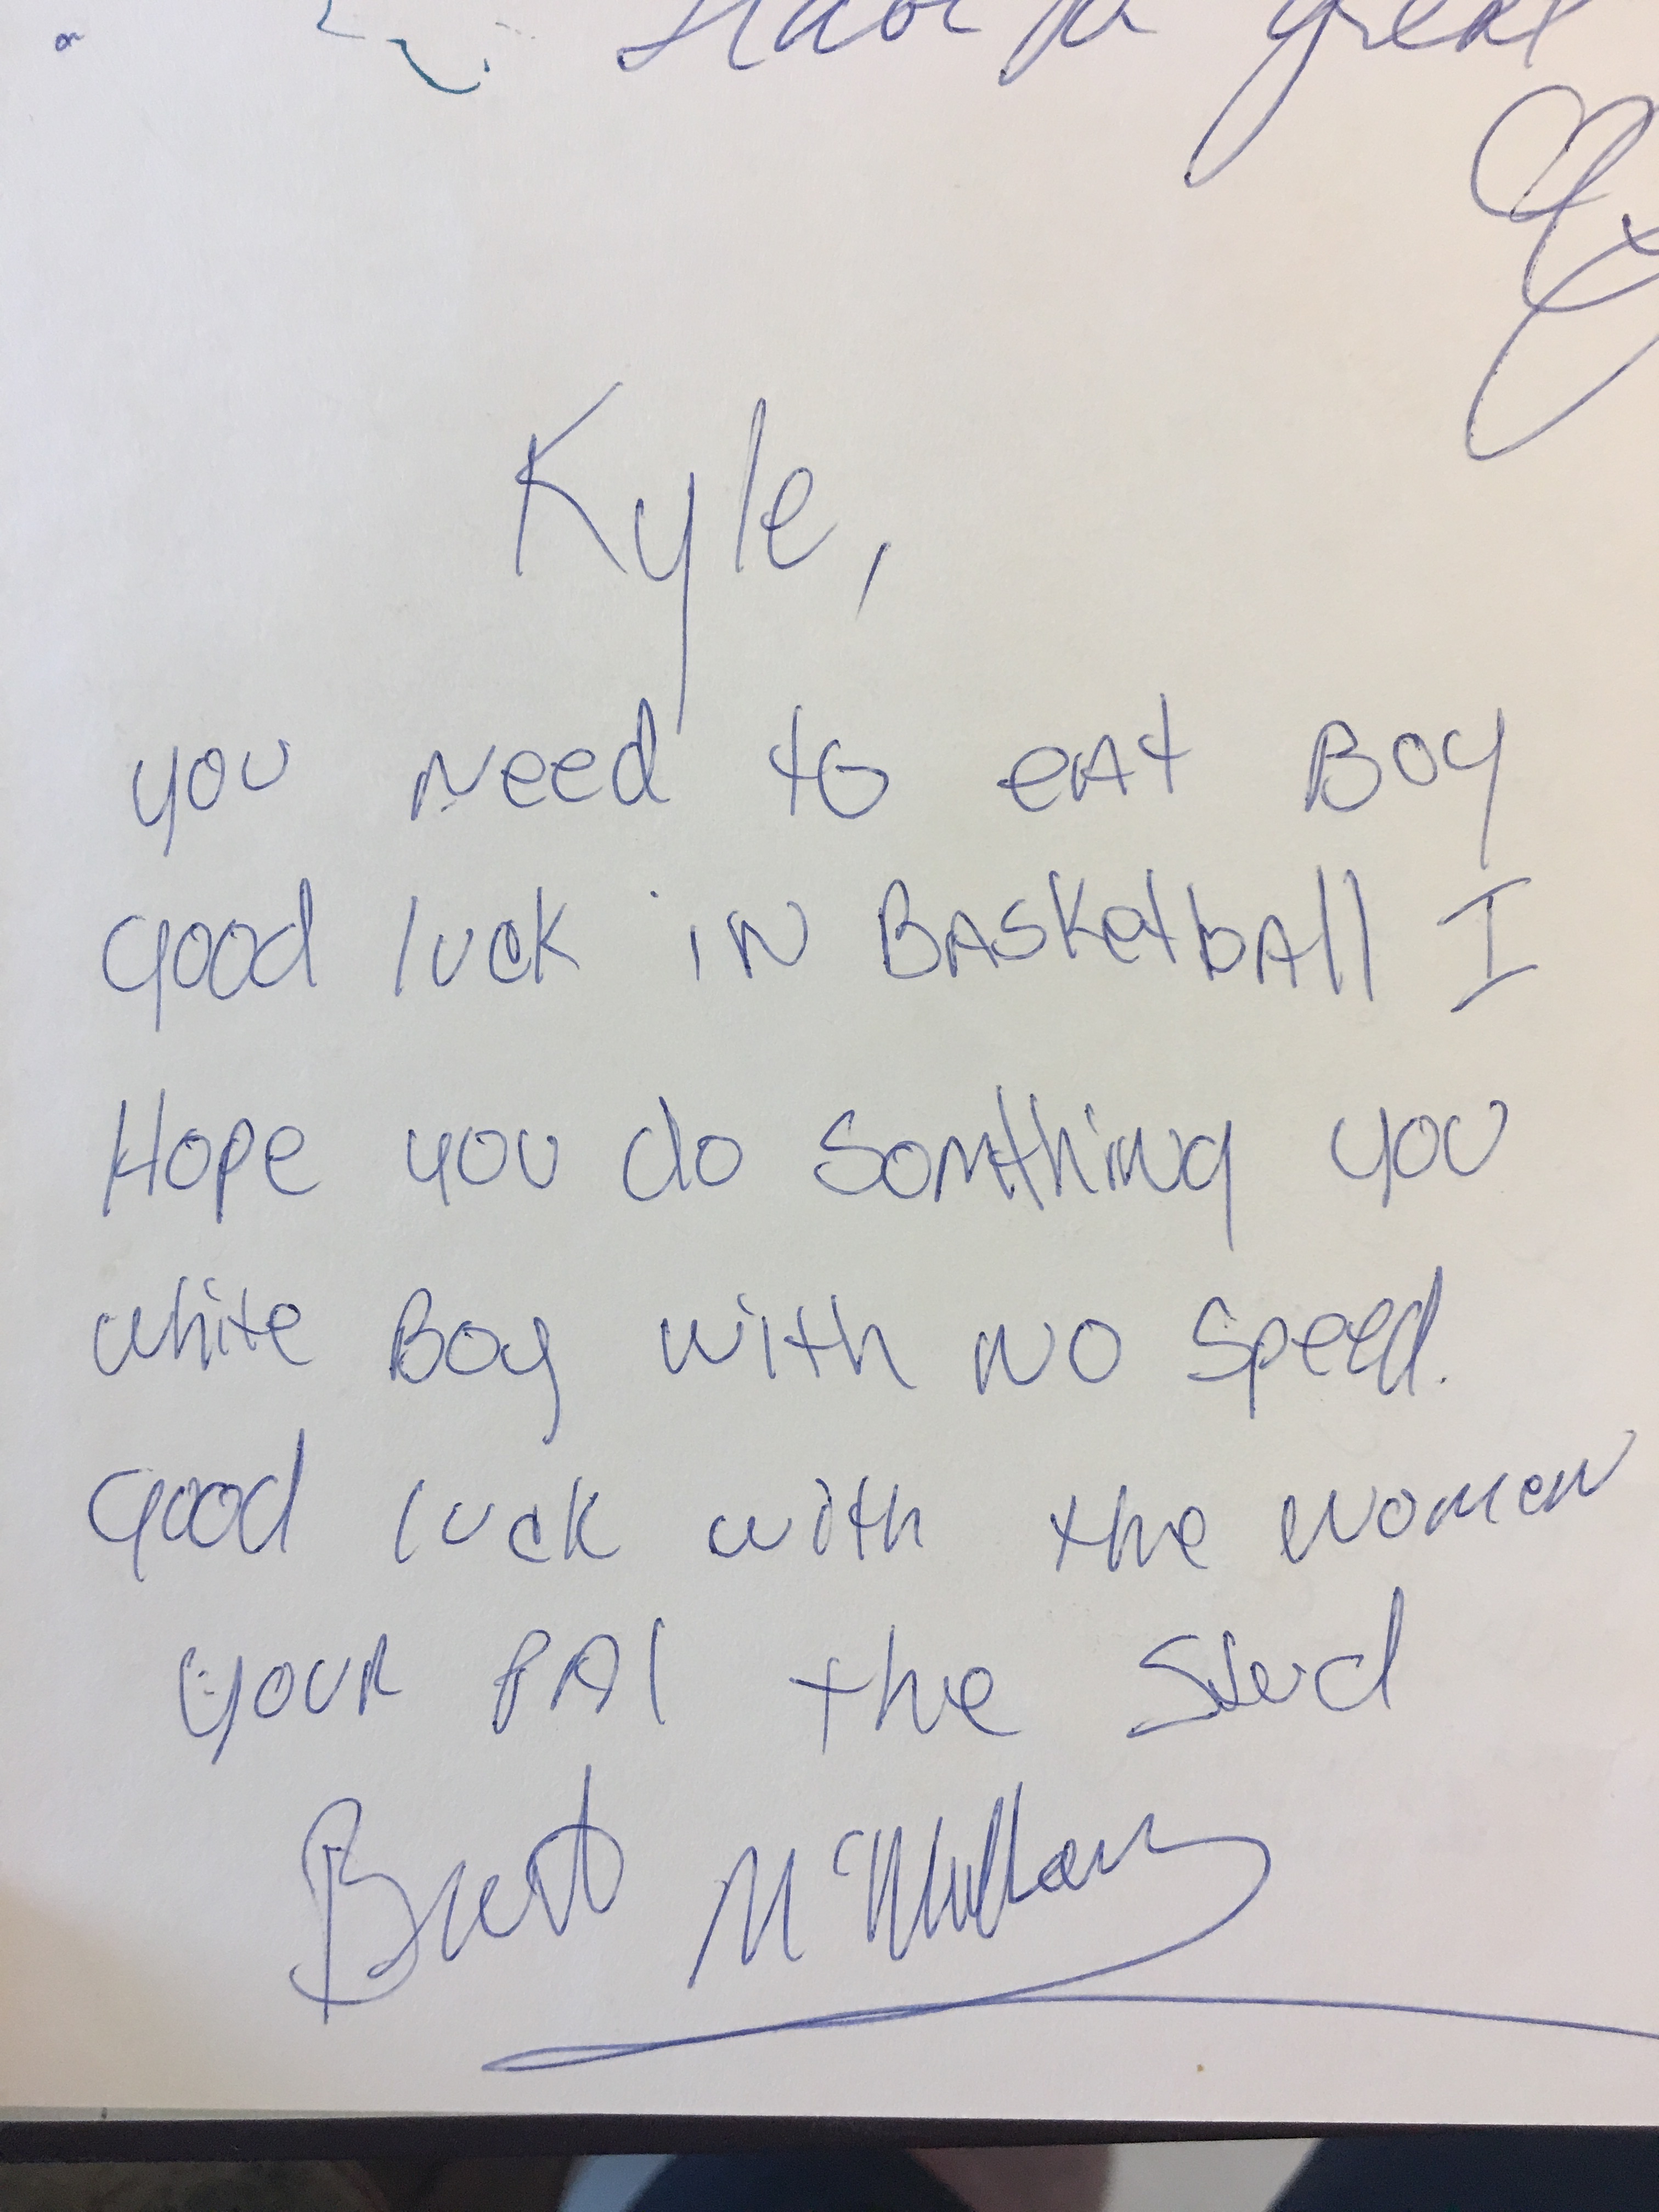 Have a great
Kyle,
you need to eat Boy
good luck in Basketball I
Hope you do somthing you
white Boy with no speed.
Good luck with the women
your PAl the Stud
McMullan